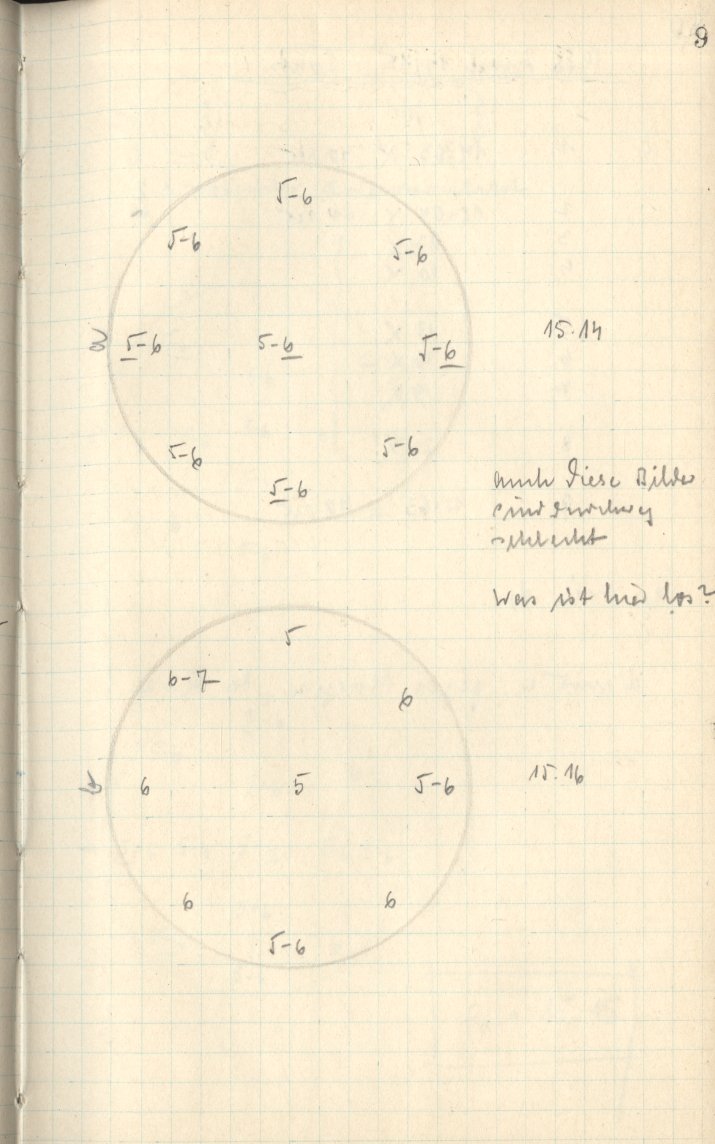 9
5-6
5-6
5-6
5-6
5-6
5-6
15.14
5-6
5-6
5-6
auch diese Bilder
sind durchweg
schlecht
Was ist hier los?
5
6-7
6
6
5
5-6
15.16
6
6
5-6